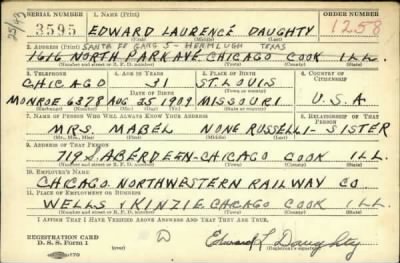 SERIAL NUMBER 1. NAME (Print) ORDER NUMBER
25/43
3595 EDWARD LAURENCE DAUGHTY 1258
(First) (Middle) (Last)
2. ADDRESS (Print) SANTA FE TEXAS
1616 NORTH PARK AVE. CHICAGO COOK ILL.
(Number and street or R. F. D. number) (Town) (County) (State)
3. TELEPHONE 4. AGE IN YEARS 5. PLACE OF BIRTH 6. COUNTRY OF CITIZENSHIP
CHICAGO 31 ST. LOUIS
(Exchange) DATE OF BIRTH (Town or county)
MONROE 6378 AUG 25 1909 MISSOURI U.S.A
(Number) (Mo.) (Day) (Yr.) (State or country)
7. NAME OF PERSON WHO WILL ALWAYS KNOW YOUR ADDRESS 8. RELATIONSHIP OF THAT PERSON
MRS. MABEL NONE SISTER
(Mr., Mrs., Miss) (First) (Middle) (Last)
9. ADDRESS OF THAT PERSON
719 S. ABERDEEN-CHICAGO COOK ILL.
(Number and street or R. F. D. number) (Town) (County) (State)
10. EMPLOYER'S NAME
CHICAGO NORTHWESTERN RAILWAY CO
11. PLACE OF EMPLOYMENT OR BUSINESS
WELLS & KINZIE CHICAGO COOK ILL.
(Number and street or R. F. D. number) (Town) (County) (State)
I AFFIRM THAT I HAVE VERIFIED ABOVE ANSWERS AND THAT THEY ARE TRUE.
REGISTRATION CARD
D. S. S. Form 1 Edward L Daughty
(Registrant's signature)